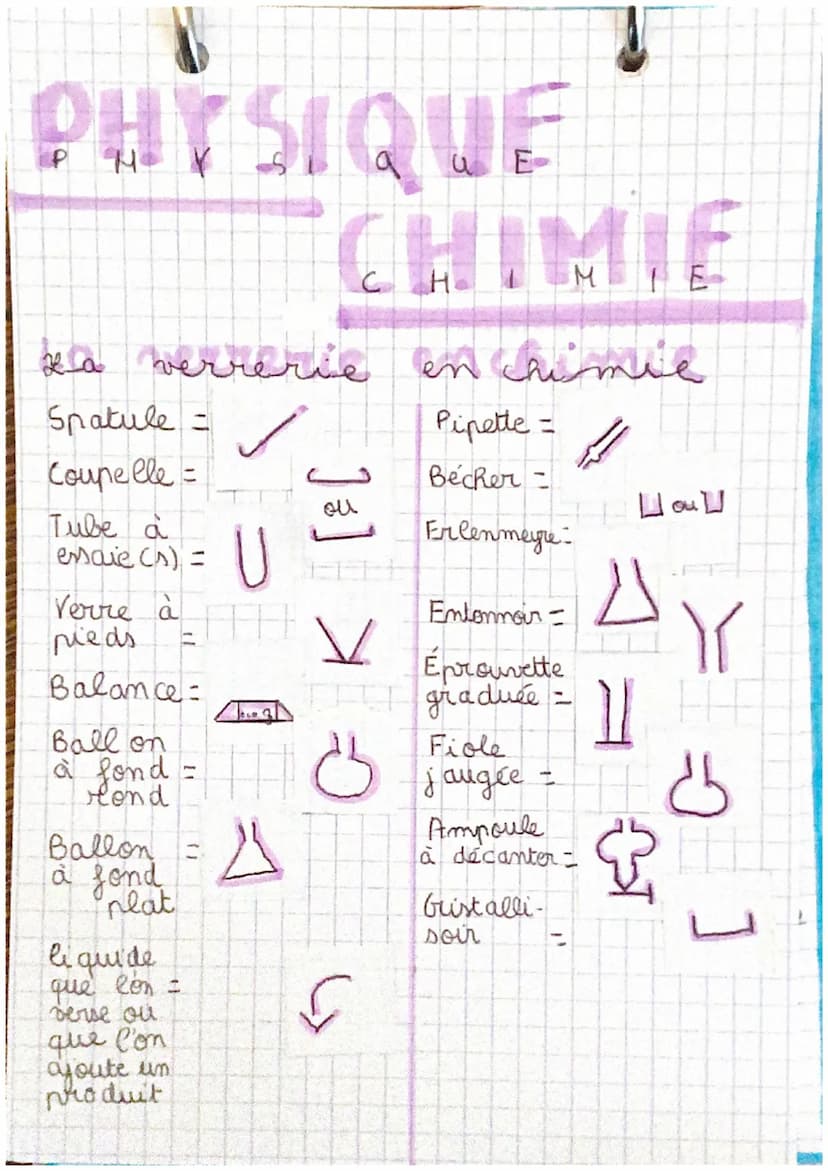 PHYSIQUE
P H Y S I Q U E
CHIMIE
C H I M I E
La verrerie en chimie
Spatule =
Coupelle =
ou
Tube à
essaie(s) =
Verre à
pieds =
Balance =
Ballon
à fond =
rond
Ballon =
à fond
plat
liquide
que l'on =
verse ou
que l'on
ajoute un
produit
Pipette =
Bécher =
ou
Erlenmeyre =
Entonnoir =
Éprouvette
graduée =
Fiole
jaugée =
Ampoule
à décanter =
Cristalli-
soir =